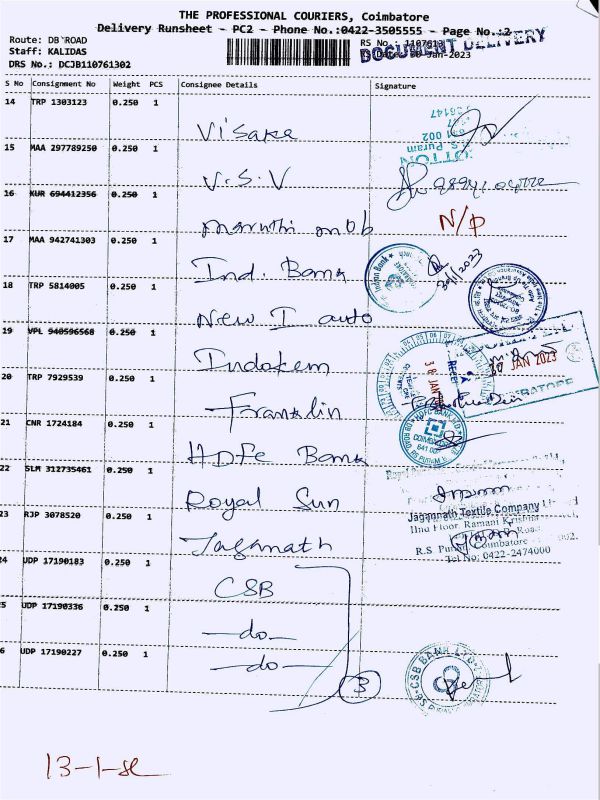 THE PROFESSIONAL COURIERS, Coimbatore
Delivery Runsheet - PC2 - Phone No.:0422-3505555 - Page No.:2
Route: DB ROAD
Staff: KALIDAS
DRS No.: DCJB110761302
RS No.: 1107613
Jan-2023
DOCUMENT DELIVERY
S No Consignment No Weight PCS Consignee Details Signature
14 TRP 1303123 0.250 1 Visaka
15 MAA 297789250 0.250 1 V.S.V
16 KUR 694412356 0.250 1 N/P
17 MAA 942741303 0.250 1 Ind. Bank
18 TRP 5814005 0.250 1 New I auto
19 VPL 940596568 0.250 1 Indokem
20 TRP 7929539 0.250 1 Franklin
21 CNR 1724184 0.250 1 HDFC Bank
22 SLM 312735461 0.250 1 Royal Sun
23 RJP 3078520 0.250 1 Jaganath
24 UDP 17190183 0.250 1 CSB
25 UDP 17190336 0.250 1 -do-
26 UDP 17190227 0.250 1 -do-
3
Indian Bank
JAN 2023
Jagannath Textile Company
IInd Floor, Ramani Krishna
Road,
R.S. Puram, Coimbatore
Tel No: 0422-2474000
CSB BANK LTD
13-1-